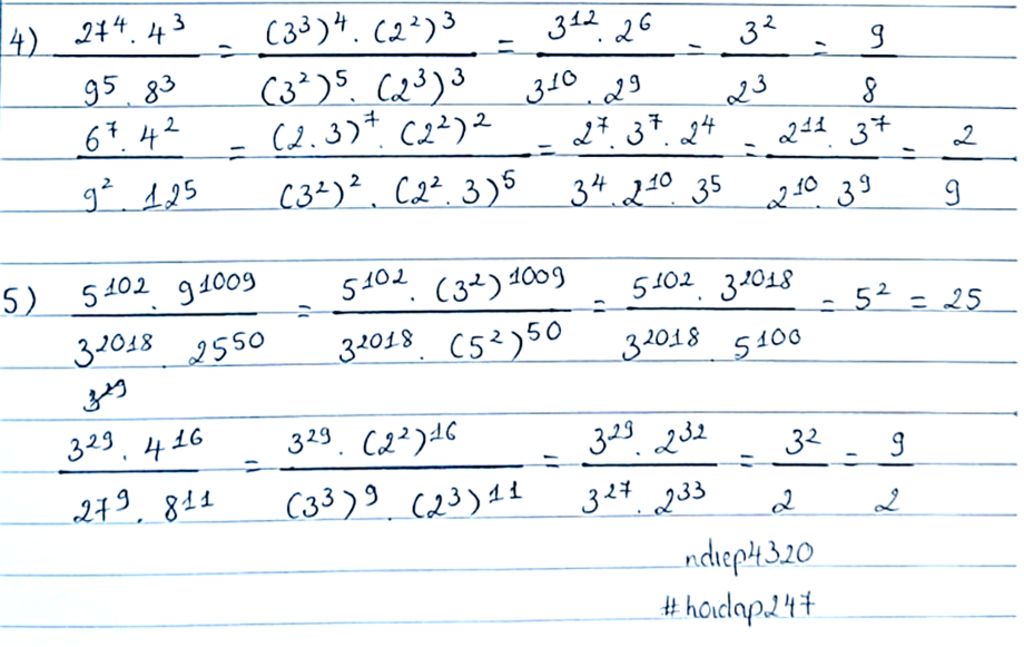 4) 27⁴ . 4³ / 9⁵ . 8³ = (3³)⁴ . (2²)³ / (3²)⁵ . (2³)³ = 3¹² . 2⁶ / 3¹⁰ . 2⁹ = 3² / 2³ = 9 / 8
6⁷ . 4² / 9² . 12⁵ = (2.3)⁷ . (2²)² / (3²)² . (2² . 3)⁵ = 2⁷ . 3⁷ . 2⁴ / 3⁴ . 2¹⁰ . 3⁵ = 2¹¹ . 3⁷ / 2¹⁰ . 3⁹ = 2 / 9
5) 5¹⁰² . 9¹⁰⁰⁹ / 3²⁰¹⁸ . 25⁵⁰ = 5¹⁰² . (3²)¹⁰⁰⁹ / 3²⁰¹⁸ . (5²)⁵⁰ = 5¹⁰² . 3²⁰¹⁸ / 3²⁰¹⁸ . 5¹⁰⁰ = 5² = 25
3²⁹ . 4¹⁶ / 27⁹ . 8¹¹ = 3²⁹ . (2²)¹⁶ / (3³)⁹ . (2³)¹¹ = 3²⁹ . 2³² / 3²⁷ . 2³³ = 3² / 2 = 9 / 2
ndiep4320
#hoidap247